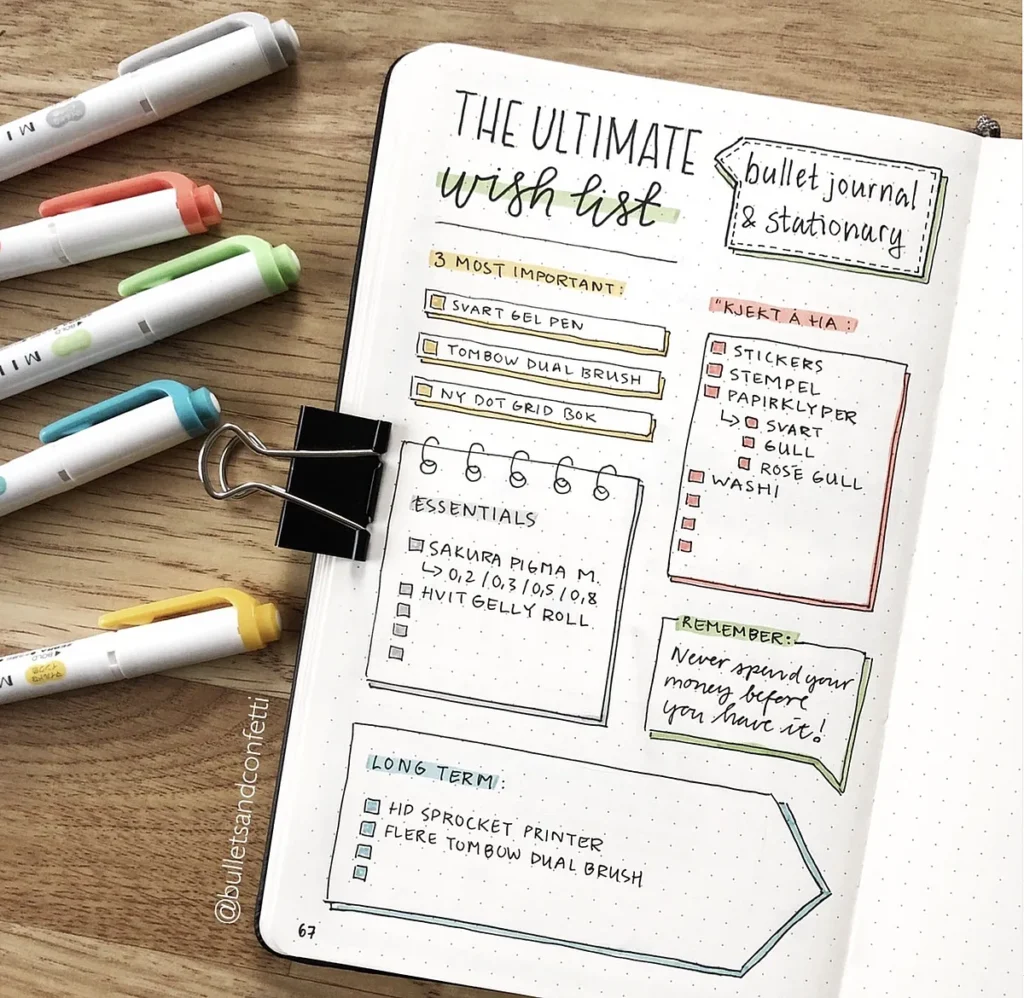 THE ULTIMATE
wish list
bullet journal
& stationary
3 MOST IMPORTANT:
SVART GEL PEN
TOMBOW DUAL BRUSH
NY DOT GRID BOK
"KJEKT Å HA:
STICKERS
STEMPEL
PAPIRKLYPER
↳ SVART
GULL
ROSE GULL
WASHI
ESSENTIALS
SAKURA PIGMA M.
↳ 0,2 / 0,3 / 0,5 / 0,8
HVIT GELLY ROLL
REMEMBER:
Never spend your
money before
you have it!
LONG TERM:
HD SPROCKET PRINTER
FLERE TOMBOW DUAL BRUSH
67
@bulletsandconfetti